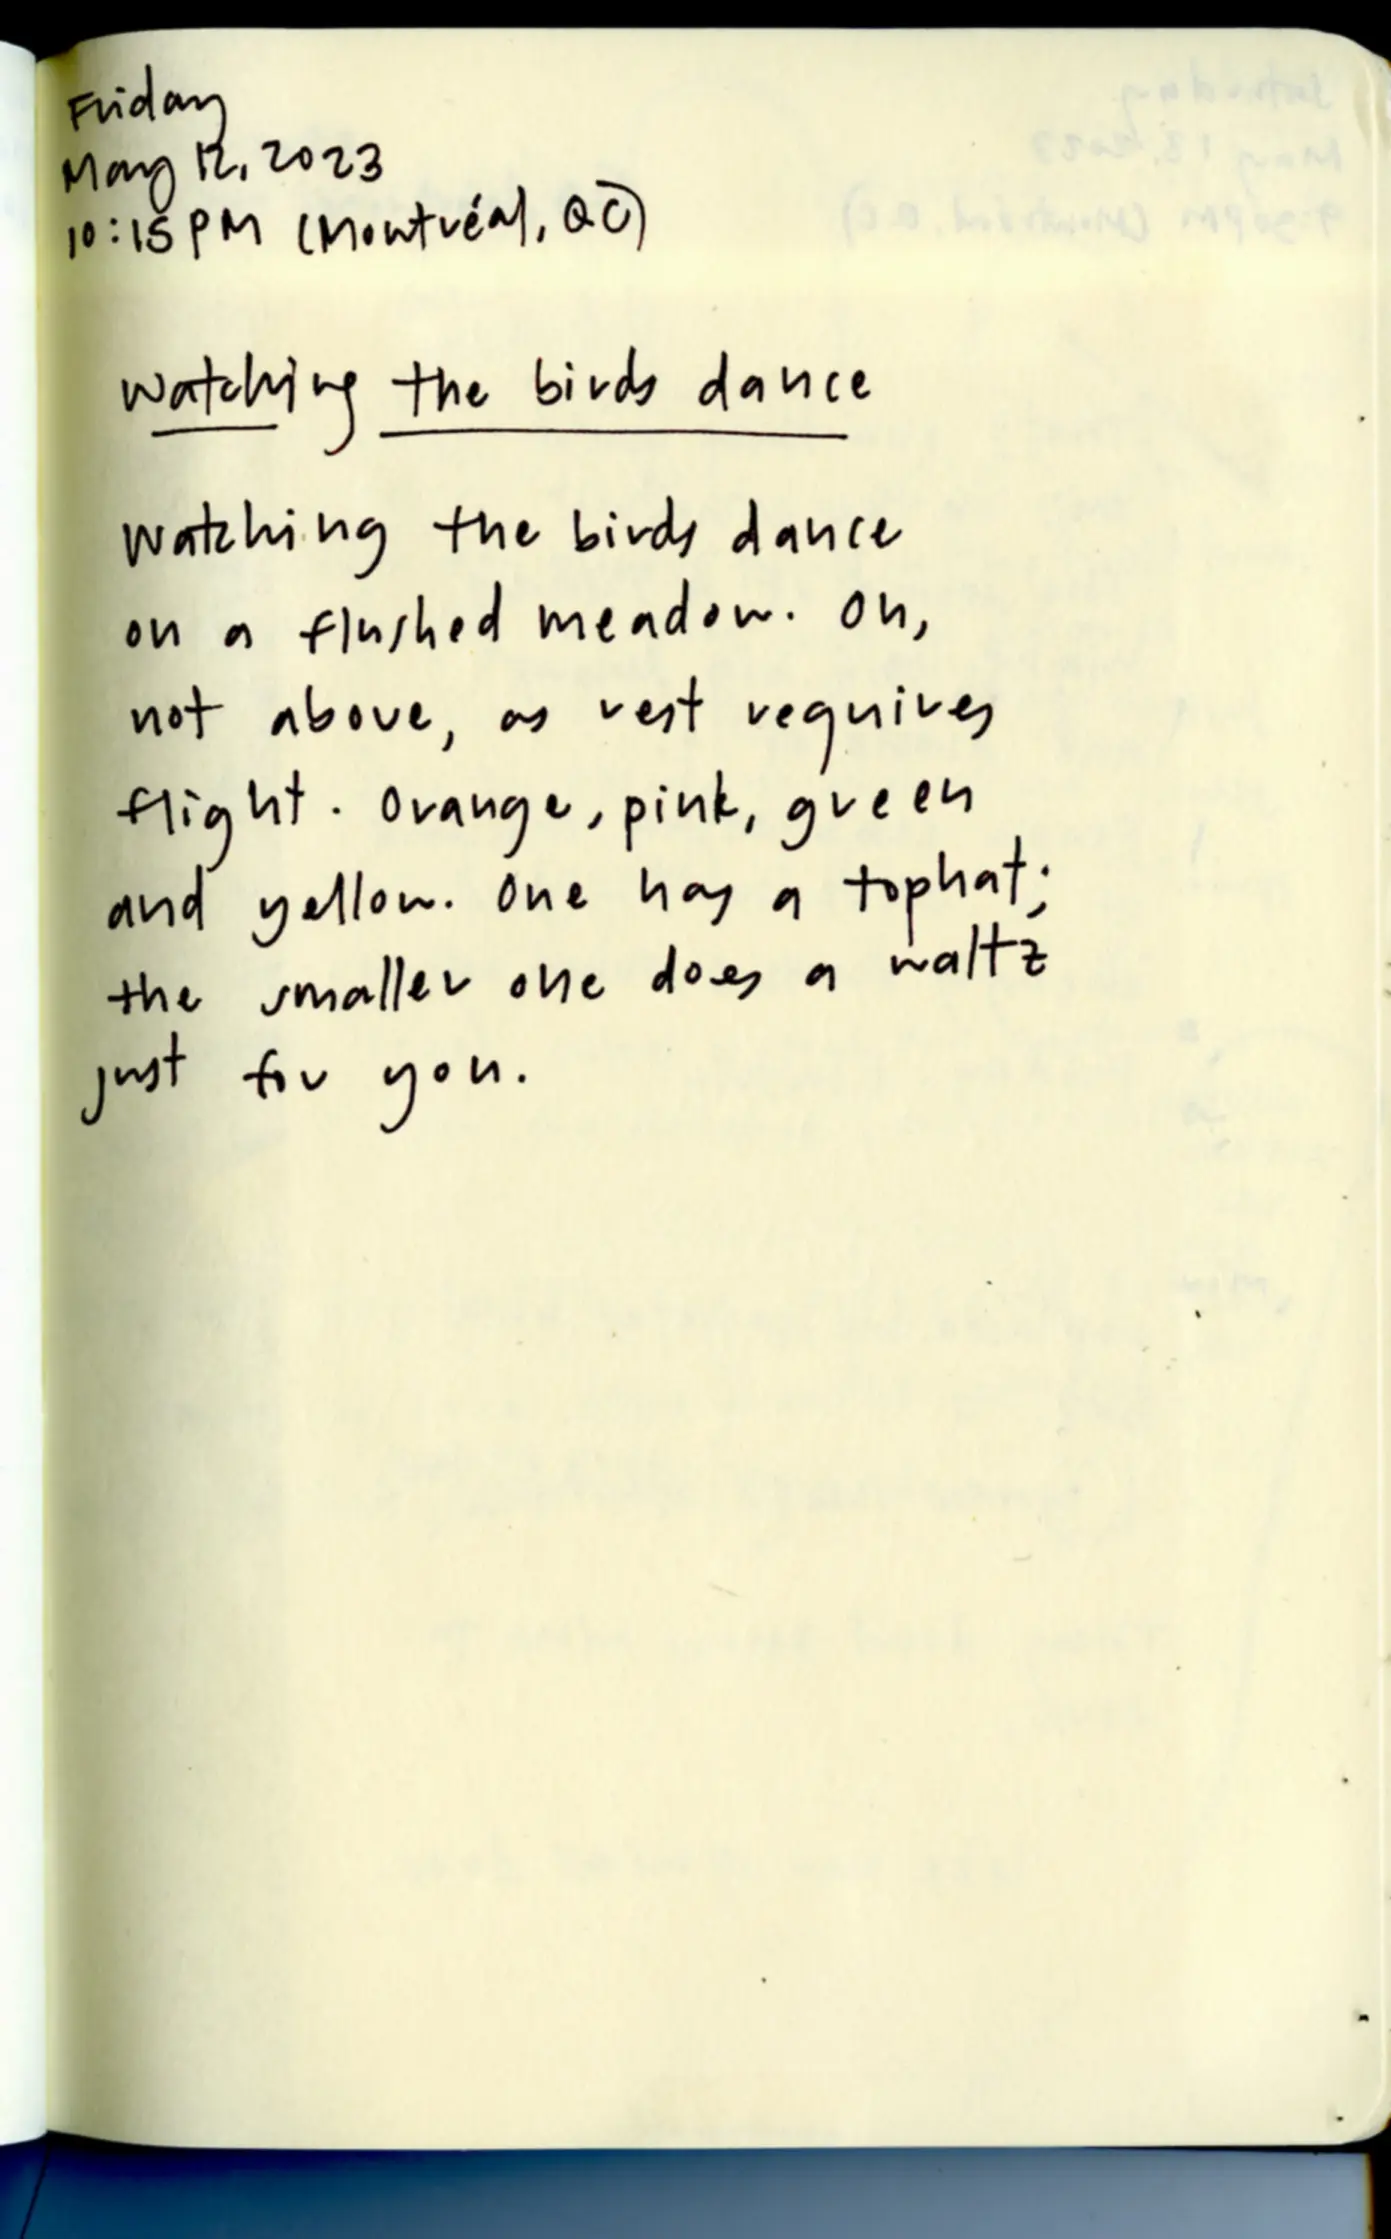 Friday
May 12, 2023
10:15 PM (Montréal, QC)
Watching the birds dance
Watching the birds dance
on a flushed meadow. On,
not above, as rest requires
flight. Orange, pink, green
and yellow. One has a tophat;
the smaller one does a waltz
just for you.